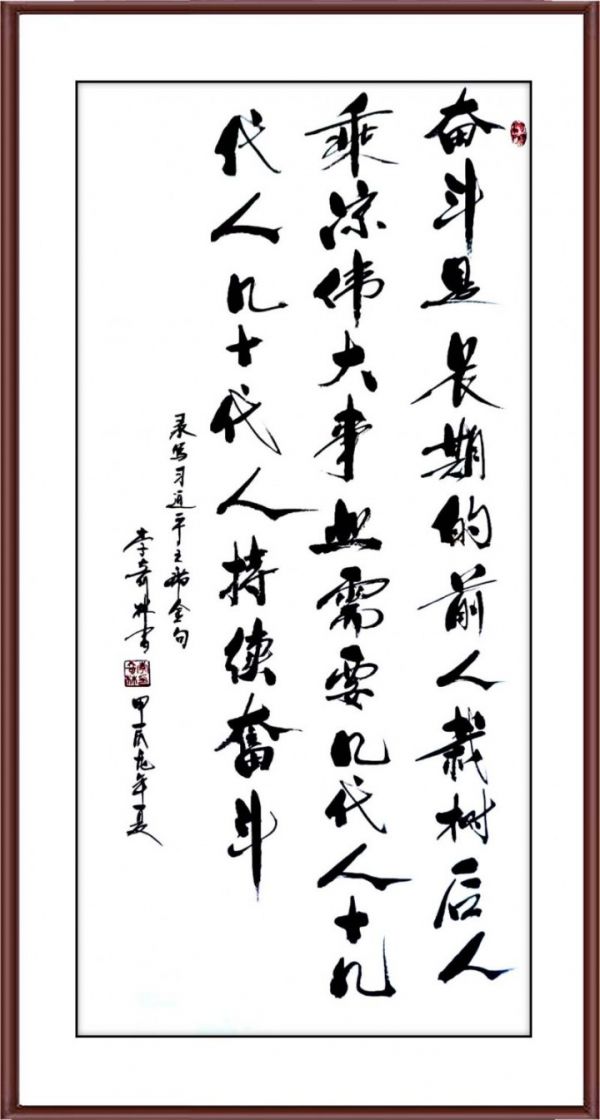 奋斗是长期的前人栽树后人
乘凉伟大事业需要几代人十几
代人几十代人持续奮斗
录写习近平主席金句
李奇林书
甲辰龙年夏